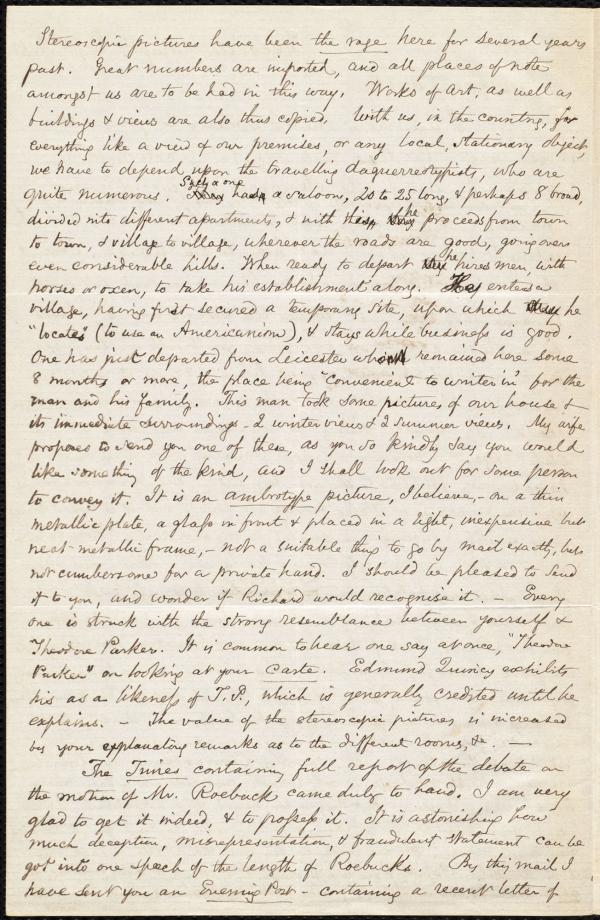 Stereoscopic pictures have been the rage here for several years
past. Great numbers are imported, and all places of note
amongst us are to be had in this way. Works of art, as well as
buildings & views are also thus copied. With us, in the country, for
everything like a view of our premises, or any local, stationary object,
we have to depend upon the travelling daguerreotypists, who are
quite numerous. Such a one has a saloon, 20 to 25 long, & perhaps 8 broad,
divided into different apartments, & with this he proceeds from town
to town, & village to village, wherever the roads are good, going over
even considerable hills. When ready to depart he hires men, with
horses or oxen, to take his establishment along. He enters a
village, having first secured a temporary site, upon which he
"locates" (to use an Americanism), & stays while business is good.
One has just departed from Leicester who remained here some
8 months or more, the place being "convenient to winter in" for the
man and his family. This man took some pictures of our house &
its immediate surroundings - 2 winter views & 2 summer views. My wife
proposes to send you one of these, as you so kindly say you would
like something of the kind, and I shall look out for some person
to convey it. It is an ambrotype picture, I believe, - on a thin
metallic plate, a glass in front & placed in a light, inexpensive but
neat metallic frame, - not a suitable thing to go by mail exactly, but
not cumbersome for a private hand. I should be pleased to send
it to you, and wonder if Richard would recognise it. - Every
one is struck with the strong resemblance between yourself &
Theodore Parker. It is common to hear one say at once, "Theodore
Parker" on looking at your carte. Edmund Quincy exhibits
his as a likeness of T.P., which is generally credited until he
explains. - The value of the stereoscopic pictures is increased
by your explanatory remarks as to the different rooms, &c. -
The Times containing full report of the debate on
the motion of Mr. Roebuck came duly to hand. I am very
glad to get it indeed, & to possess it. It is astonishing how
much deception, misrepresentation, & fraudulent statement can be
got into one speech of the length of Roebucks. By this mail I
have sent you an Evening Post - containing a recent letter of